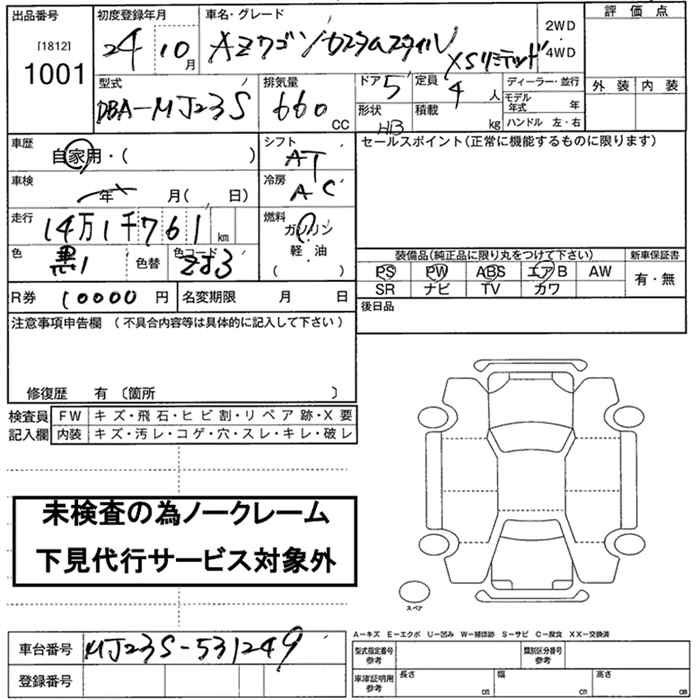 出品番号
[1812]
1001
初度登録年月
24 10月
車名・グレード
AZワゴンカスタムスタイル
XSリミテッド
2WD
・
4WD
評価点
外装 内装
型式
DBA-MJ23S
排気量
660 CC
ドア 5
形状 HB
定員 4人
積載 kg
ディーラー・並行
モデル年式 年
ハンドル 左・右
車歴
自家用・( )
シフト
AT
セールスポイント(正常に機能するものに限ります)
車検
年 月( 日)
冷房
AC
走行
14万1千761km
燃料
ガソリン
軽・油
( )
色
黒1
色替
色コード
ZJ3
装備品(純品品に限り丸をつけて下さい)
新車保証書
PS PW ABS エアB AW
SR ナビ TV カワ
有・無
R券 10000円
名変期限 月 日
後日品
注意事項申告欄 (不具合内容等は具体的に記入して下さい)
修復歴 有 〔箇所 〕
検査員記入欄
FW キズ・飛石・ヒビ割・リペア跡・X要
内装 キズ・汚レ・コゲ・穴・スレ・キレ・破レ
未検査の為ノークレーム
下見代行サービス対象外
スペア
A-キズ E-エクボ U-凹み W-補修跡 S-サビ C-腐食 XX-交換済
車台番号 MJ23S-531249
登録番号
型式指定番号 参考
類別区分番号 参考
車庫証明用 参考
長さ cm
幅 cm
高さ cm